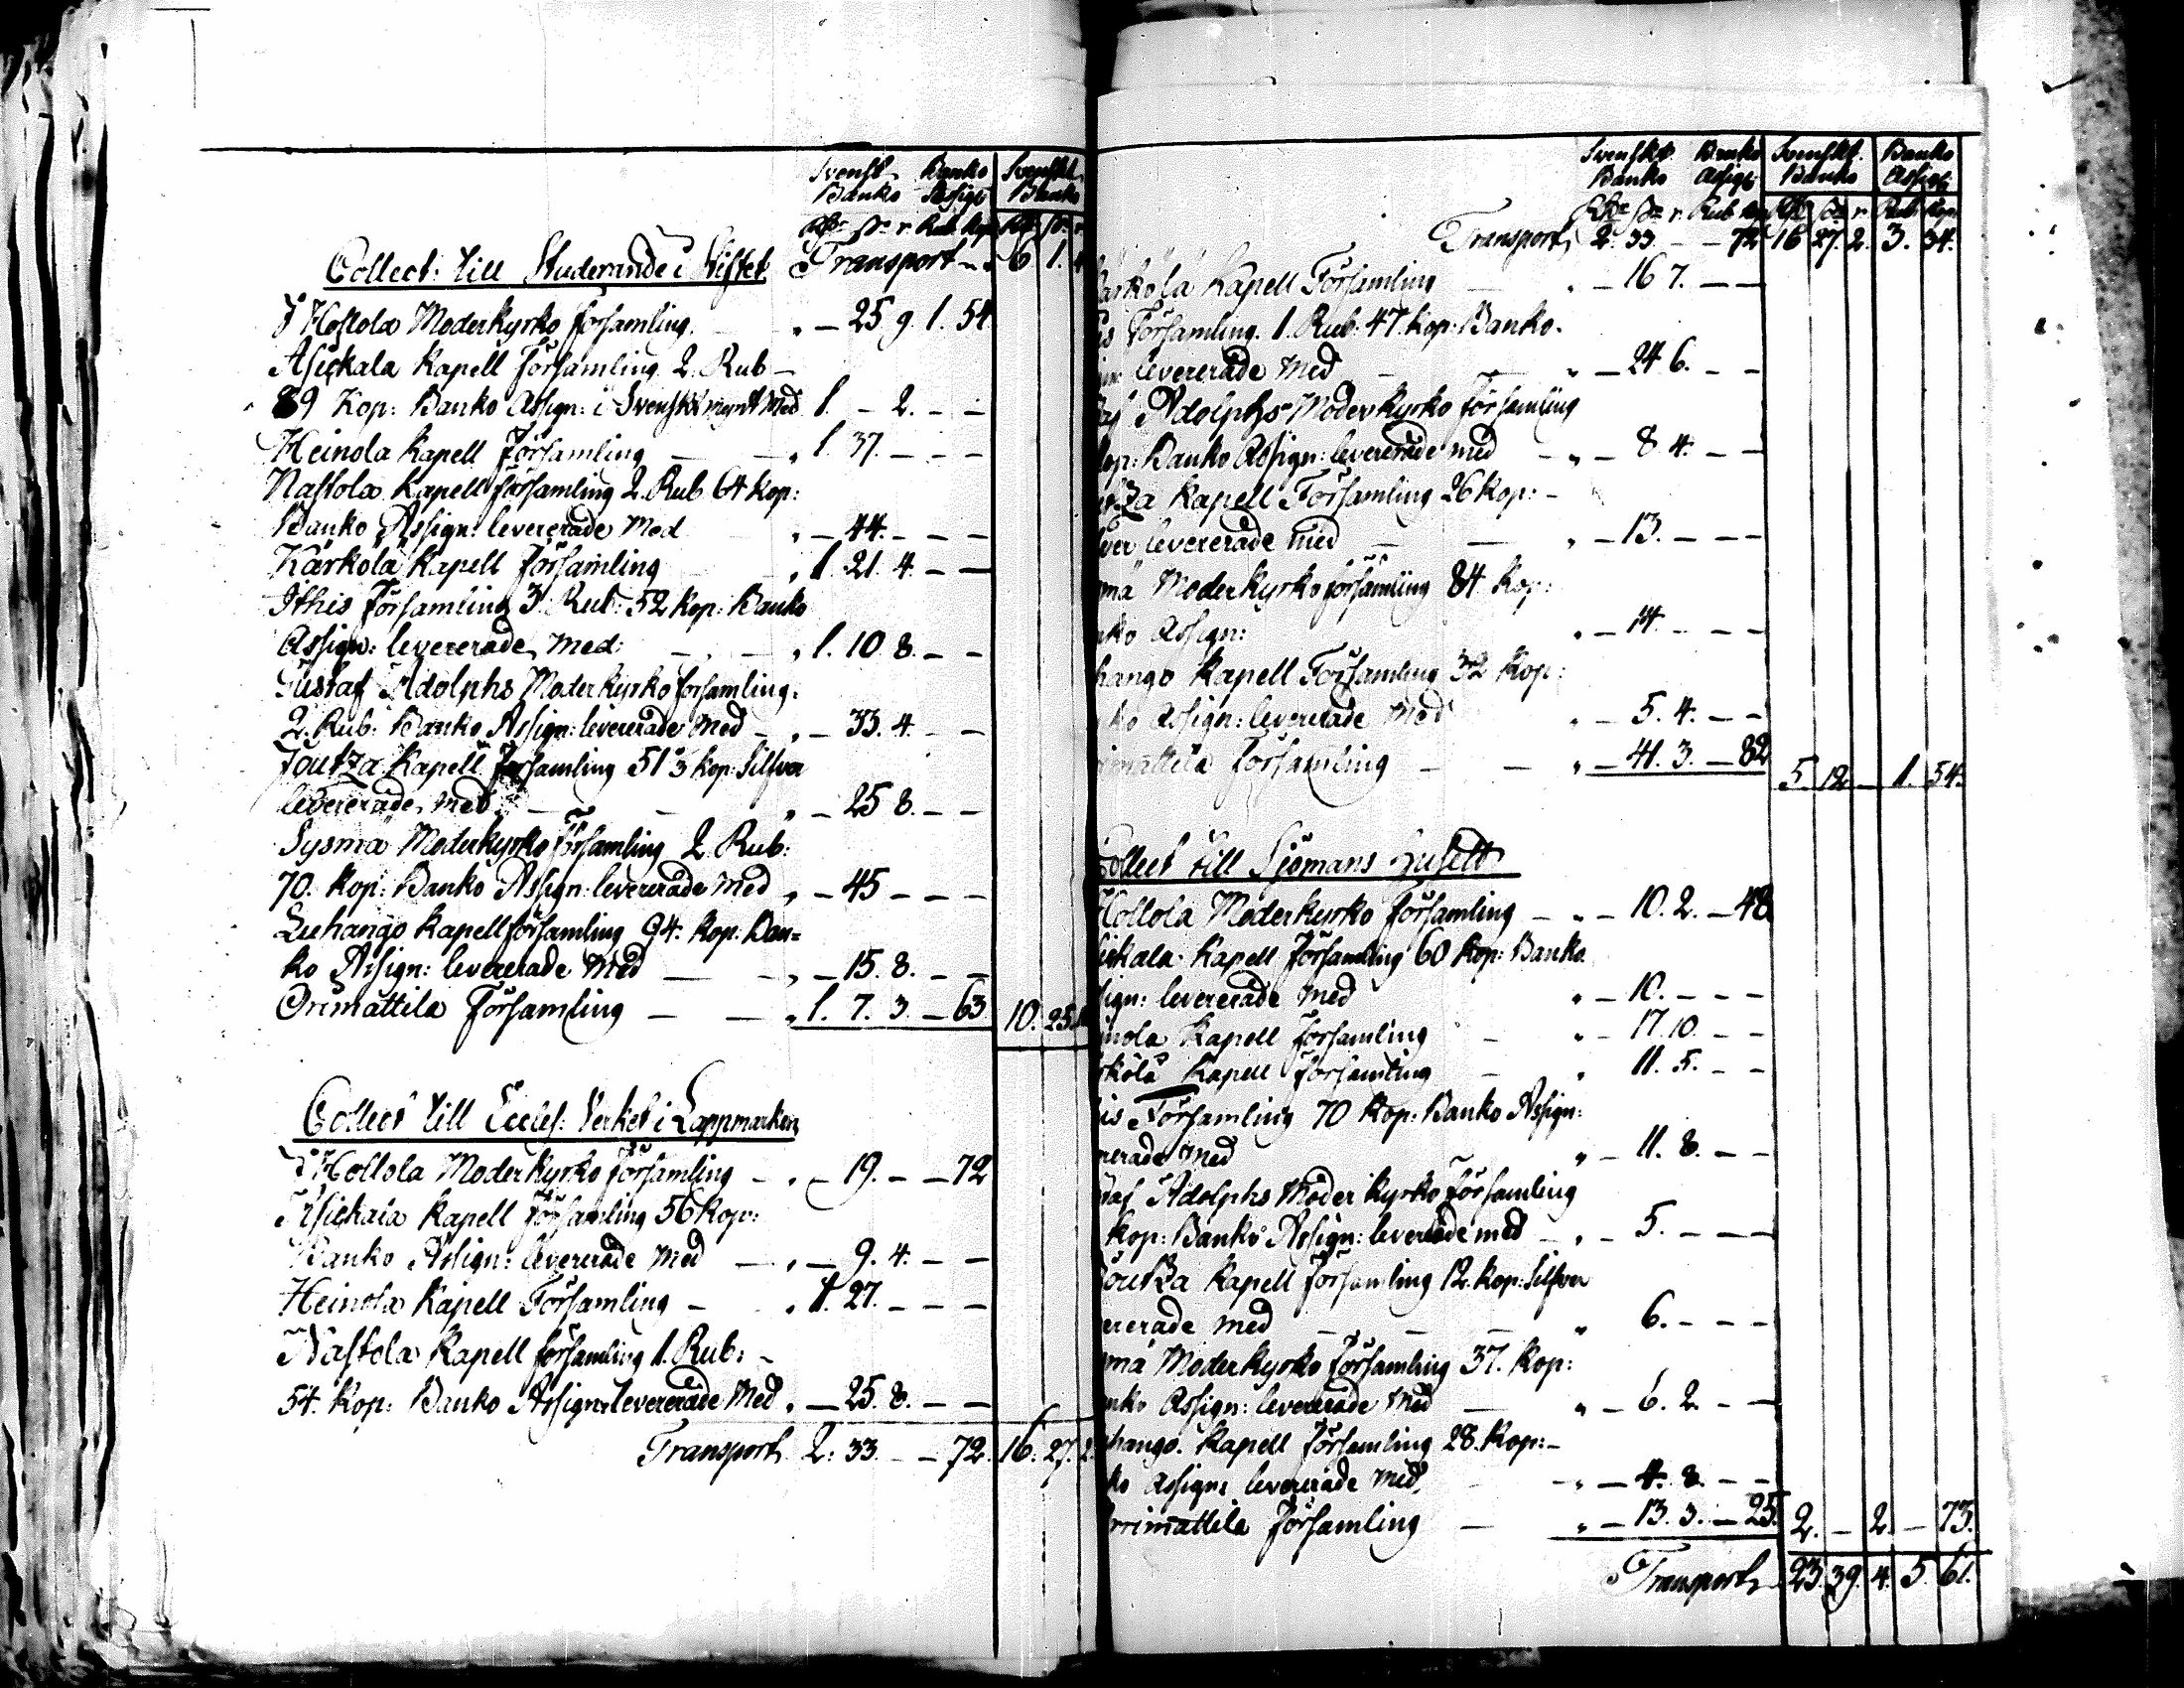 Svenskt Banko Svenskt
Banko Assign: Banko
Rdr ss r. Rub. Kop. Rdr ss r
Collect: till Studerande i Stiftet Transport 6 1.
I Hollola Moderkyrko församling „ – 25. 9. 1. 54
Asickala Kapell Församling 2. Rub –
89 Kop: Banko Assign: i Svenskt mynt med 1. – 2. – –
Heinola Kapell Församling – „ 1. 37. – – –
Nastola Kapell församling 2. Rub 64 Kop:
Banko Assign: levererade med „ – 44. – – –
Kärkölä Kapell Församling „ 1. 21. 4. – –
Ithis Församling 3. Rub: 52 Kop: Banko
Assign: levererade med: – „ 1. 10. 8. – –
Gustaf Adolphs Moderkyrko församling.
2. Rub: Banko Assign: levererade med – „ – 33. 4. – –
Joutza Kapell Församling 51 3 Kop: Silfver
levererade med – „ – 25 8. – –
Sysmä Moderkyrko församling 2 Rub:
70. Kop: Banko Assign: levererade med „ – 45 – – –
Luhango Kapell församling 94. Kop: Ban=
ko Assign: levererade med – „ – 15. 8. – –
Orimattila Församling – – „ 1. 7. 3. – 63 10. 25.
Collect till Eccles: Verket i Lappmarken
I Hollola Moderkyrko församling – „ – 19. – – 72
Asickala Kapell Församling 56 Kop:
Banko Assign: levererade med – „ – 9. 4. – –
Heinola Kapell Församling – „ 1. 27. – – –
Nastola Kapell församling 1. Rub: –
54. Kop: Banko Assign: levererade med „ – 25. 8. – –
Transport 2. 33. – – 72. 16. 27. 2.
Svenskt Banko Svenskt. Banko
Banko Assign: Banko Assign:
Rdr ss r. Rub Kop Rdr ss r. Rub: Kop.
Transport 2. 33. – – 72 16 27. 2. 3. 34.
ärkölä Kapell Församling – „ – 16 7. – –
is Församling. 1. Rub: 47. Kop: Banko.
levererade med – „ – 24 6. – –
af Adolphs Moderkyrko församling
Kop: Banko Assign: levererade med – „ – 8 4. – –
tza Kapell Församling 26 Kop: –
ver levererade med – – „ – 13. – – –
mä Moderkyrko församling 84 Kop:
nko Assign: „ – 14. – – –
hango Kapell Församling 32 Kop:
ko Assign: levererade med „ – 5. 4. – –
rimattila Församling – – „ – 41. 3. – 82 5. 12 – 1. 54.
Collect till Sjömans Huset
Hollola Moderkyrko Församling – „ – 10. 2. – 48
ikala Kapell Församling 60 Kop: Banko
sign: levererade med „ – 10. – – –
inola Kapell församling – „ – 17. 10. – –
rkölä Kapell församling – „ 11. 5. – –
is Församling 70 Kop: Banko Assign:
rerade med „ – 11. 8. – –
af Adolphs Moder Kyrko Församling
Kop: Banko Assign: levererade med – „ – 5. – – –
Joutza Kapell församling 12. Kop: Silfver
ererade med – – – „ 6. – – –
mä Moderkyrko församling 37. Kop:
nko Assign: levererade med – „ – 6. 2. – –
hango Kapell Församling 28. Kop: –
ko Assign: levererade med – „ – 4. 8. – –
rimattila Församling – „ – 13. 3. – 25. 2. – 2. – 73.
Transport 23. 39. 4. 5. 61.